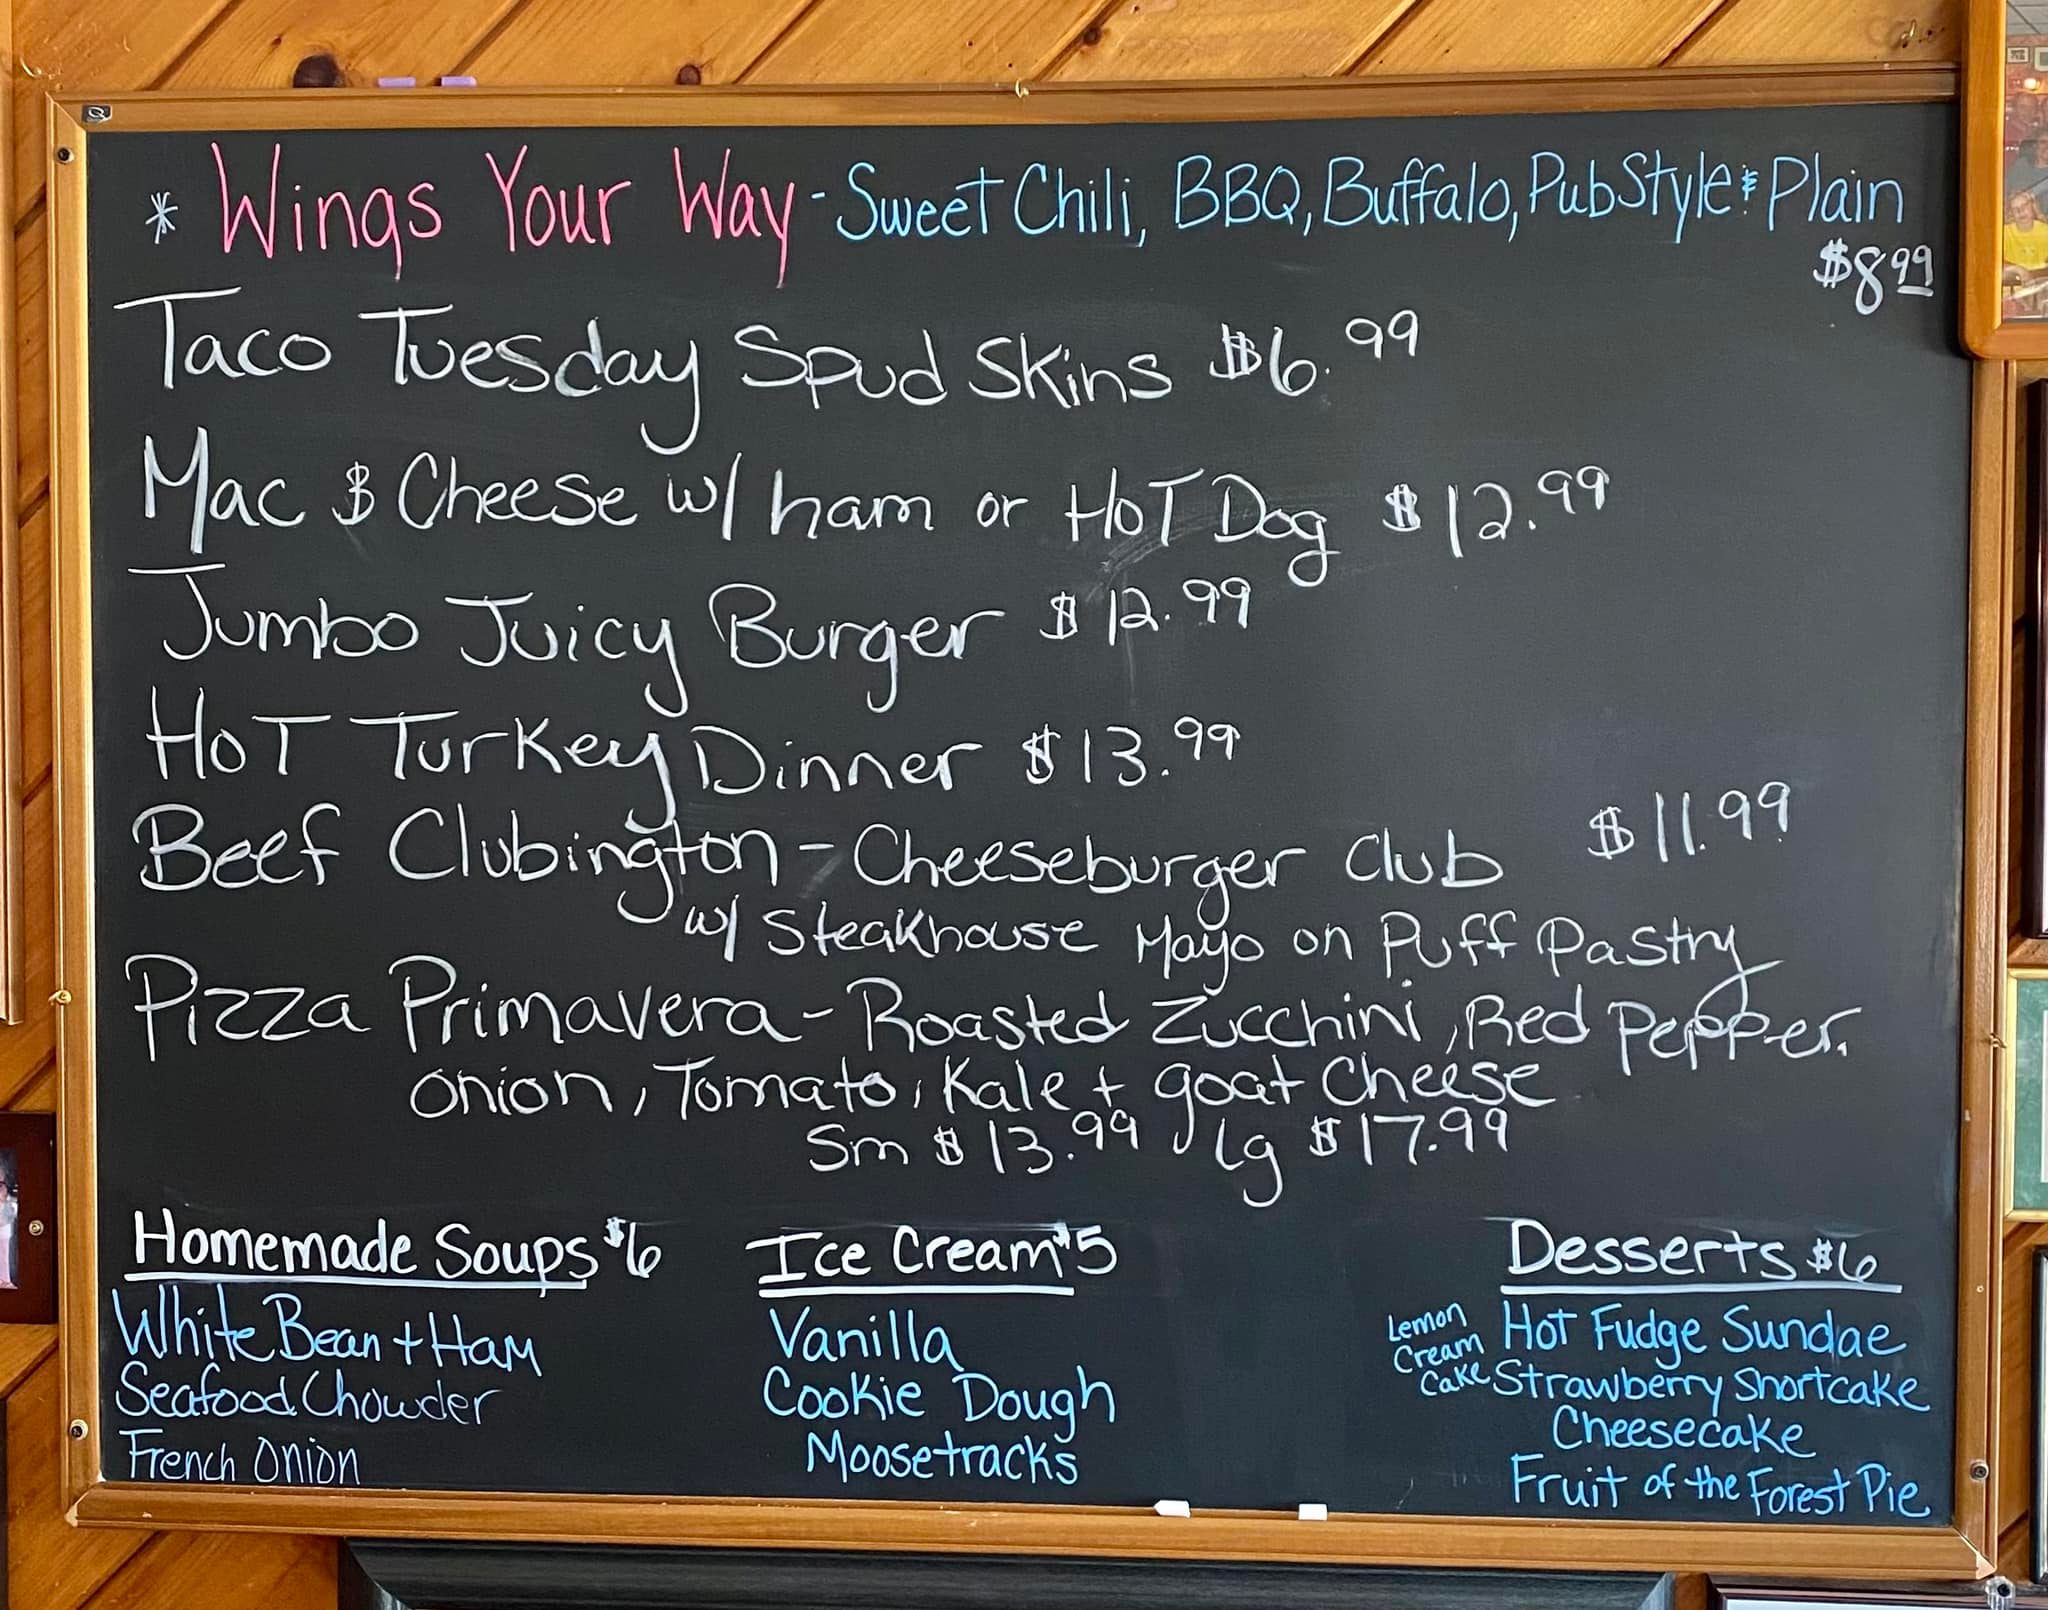 * Wings Your Way - Sweet Chili, BBQ, Buffalo, Pub Style & Plain
$8.99
Taco Tuesday Spud Skins $6.99
Mac & Cheese w/ ham or HOT Dog $12.99
Jumbo Juicy Burger $12.99
HOT Turkey Dinner $13.99
Beef Clubington - Cheeseburger Club $11.99
w/ Steakhouse Mayo on Puff Pastry
Pizza Primavera - Roasted Zucchini, Red Pepper.
onion, Tomato, Kale + goat Cheese
Sm $13.99 Lg $17.99
Homemade Soups $6
White Bean + Ham
Seafood Chowder
French Onion
Ice Cream $5
Vanilla
Cookie Dough
Moosetracks
Desserts $6
Lemon
Cream
Cake
Hot Fudge Sundae
Strawberry Shortcake
Cheesecake
Fruit of the Forest Pie